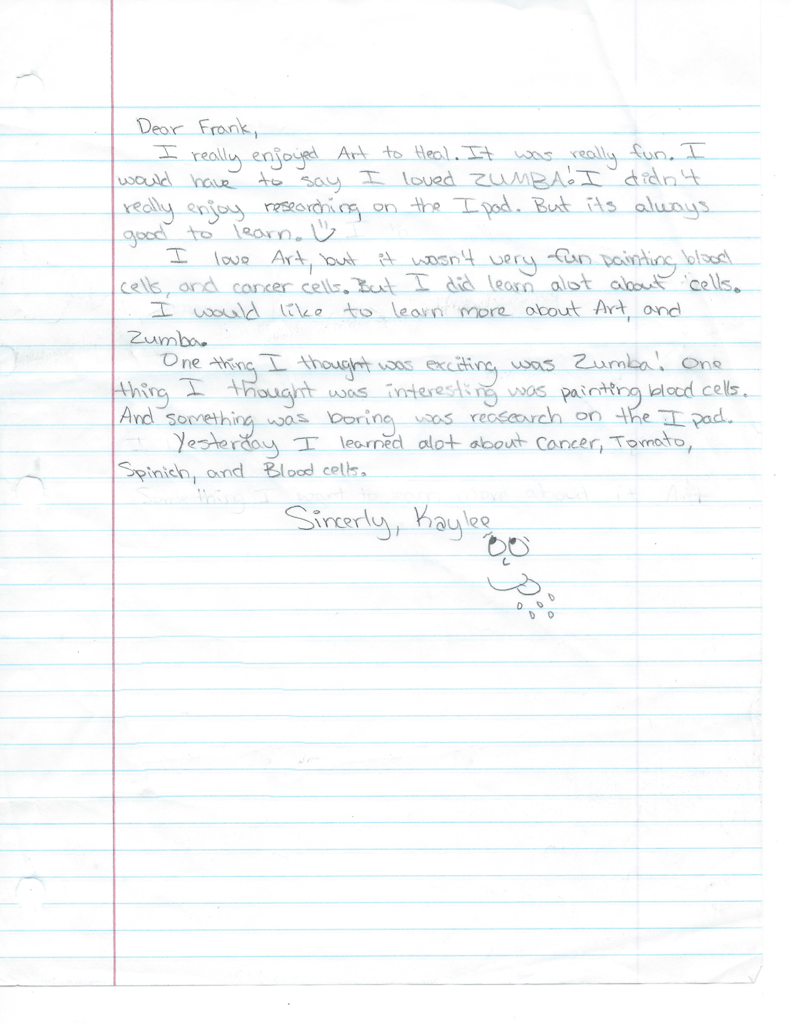 Dear Frank,
I really enjoyed Art to Heal. It was really fun. I
would have to say I loved ZUMBA! I didn't
really enjoy researching on the I pad. But its always
good to learn.
I love Art, but it wasn't very fun painting blood
cells, and cancer cells. But I did learn alot about cells.
I would like to learn more about Art, and
Zumba.
One thing I thought was exciting was Zumba! One
thing I thought was interesting was painting blood cells.
And something was boring was reasearch on the I pad.
Yesterday I learned alot about Cancer, Tomato,
Spinich, and Blood cells.
Something I want to about it Art
Sincerly, Kaylee